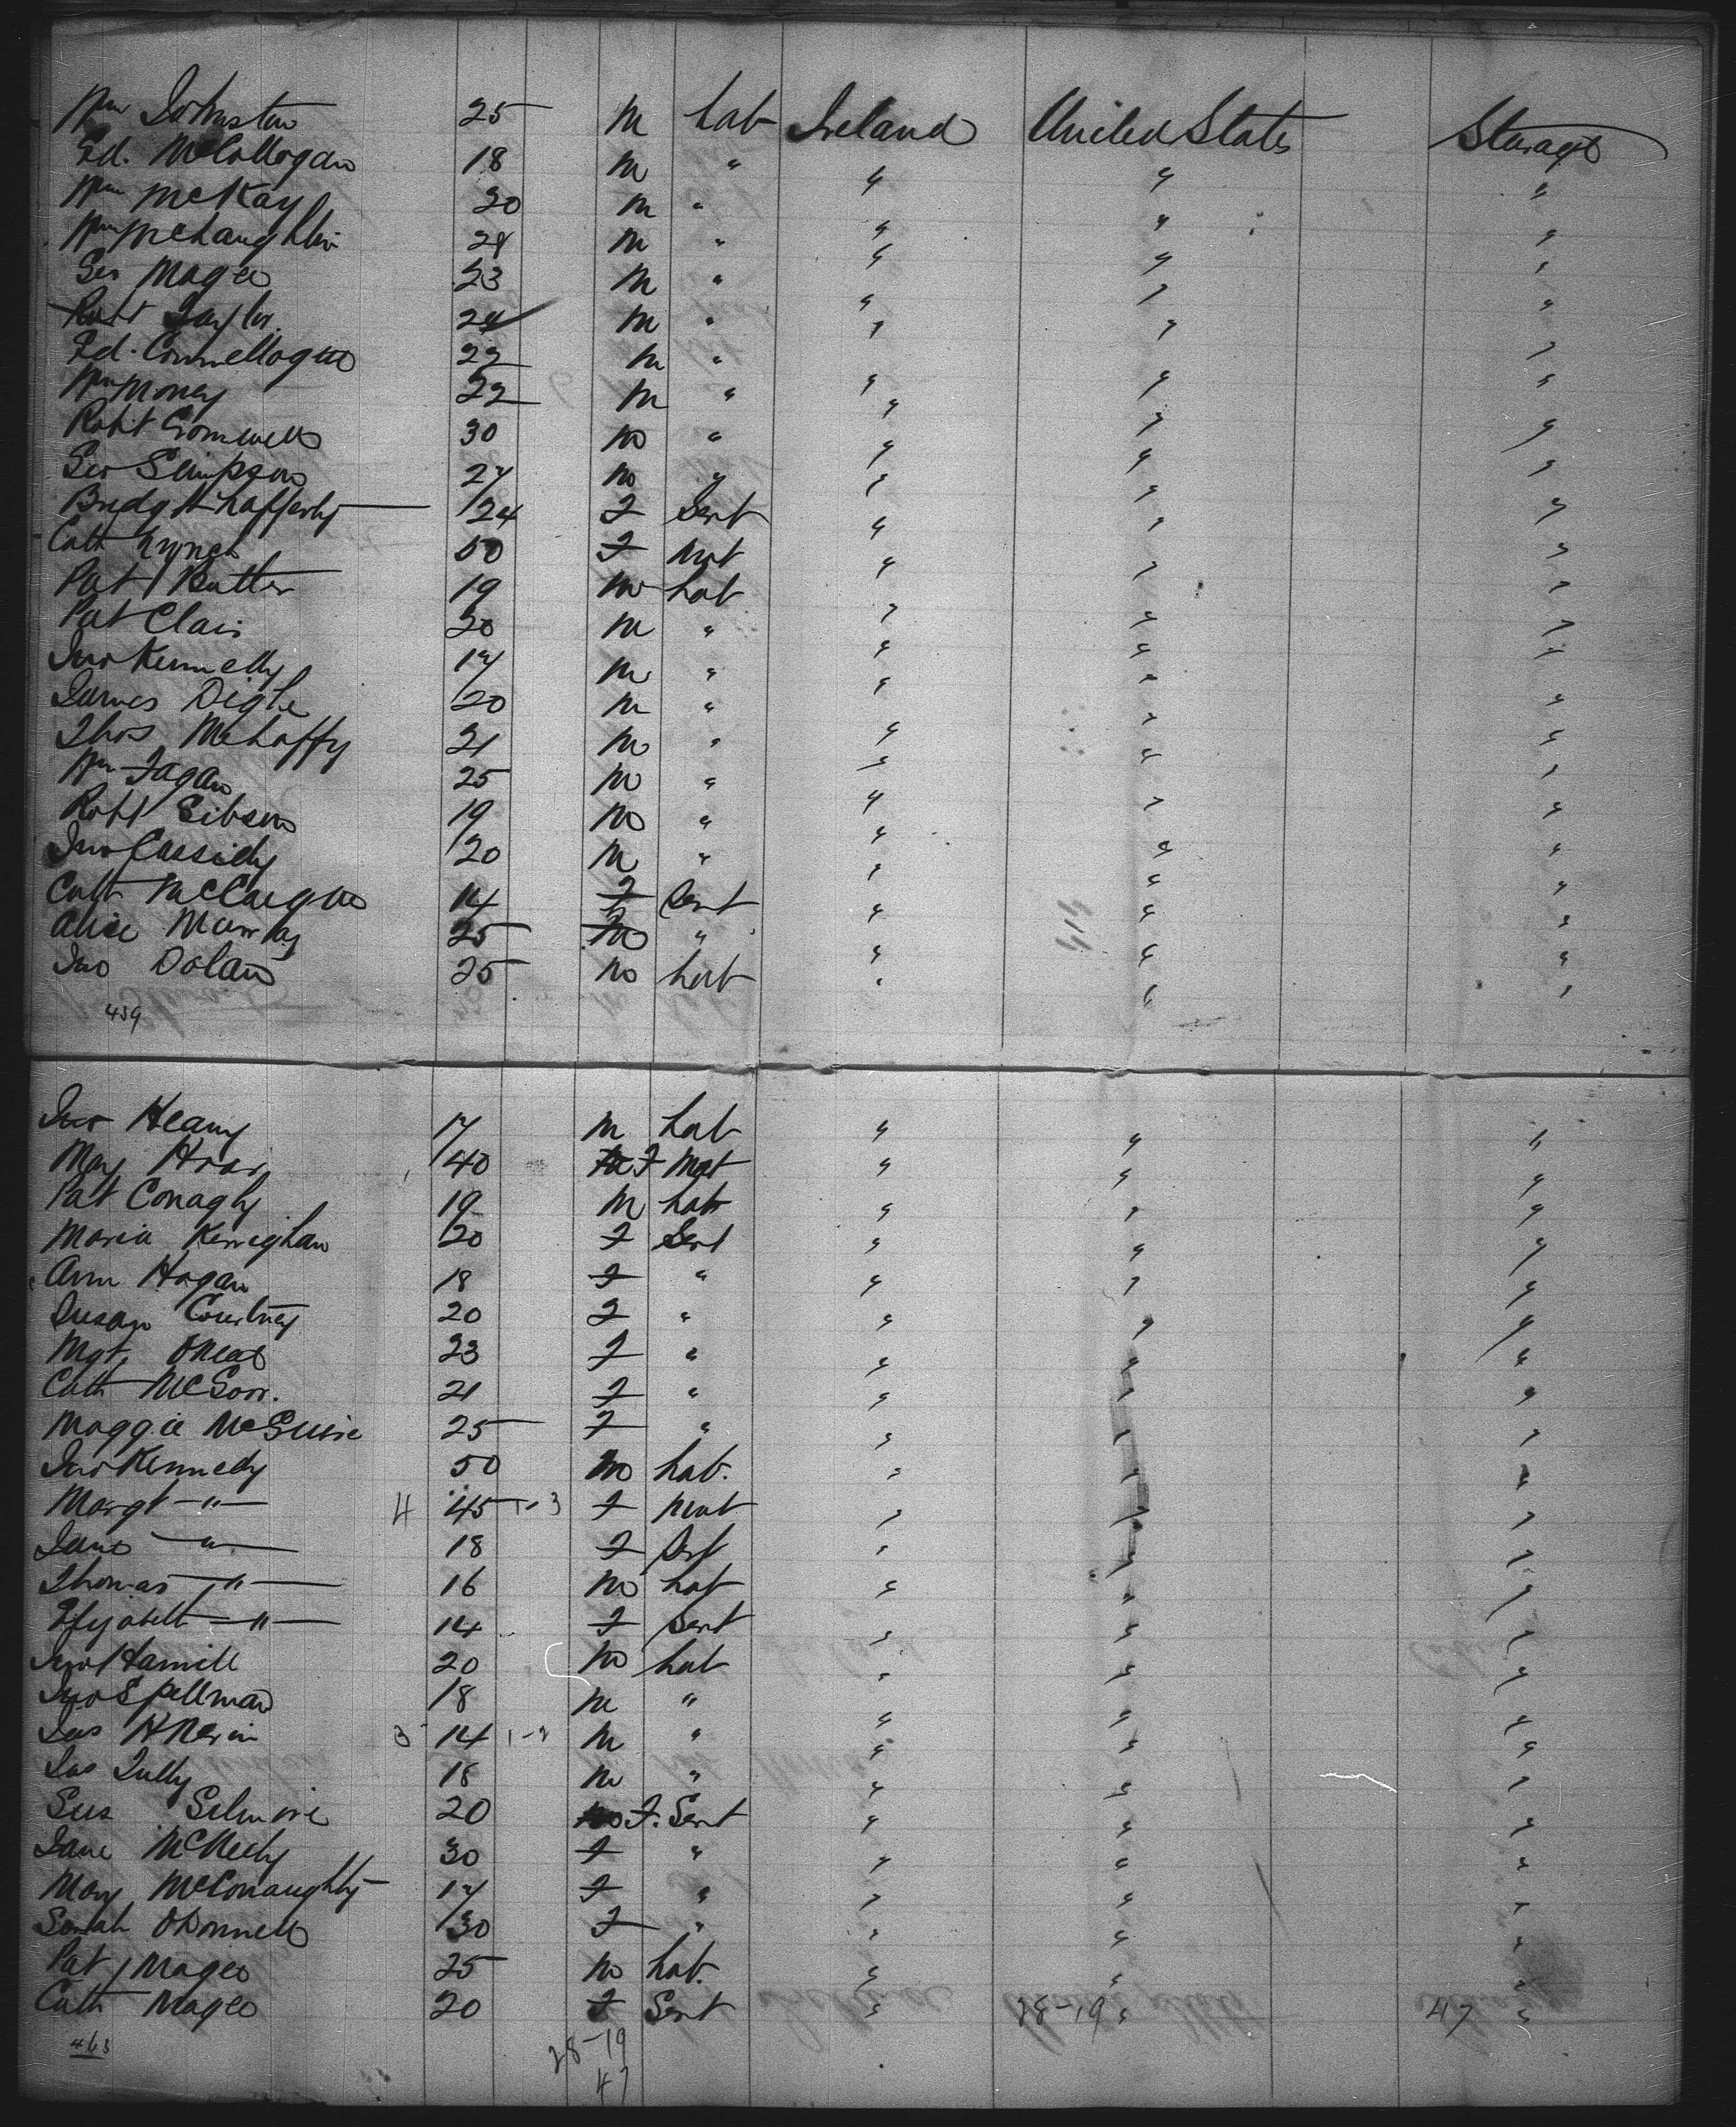 Wm Johnston 25 M Lab Ireland United States Sterage
Ed. McCollogan 18 M " " " "
Wm McKay 20 M " " " "
Wm McLaughlin 28 M " " " "
Geo Magee 23 M " " " "
Robt Taylor 24 M " " " "
Ed. Connellogue 22 M " " " "
Wm Money 22 M " " " "
Robt Cromwell 30 M " " " "
Geo Simpson 27 M " " " "
Bridgt Lafferty 24 F Servt " " "
Cath Lynch 50 F Mat " " "
Pat Butler 19 M Lab " " "
Pat Clair 20 M " " " "
Jno Kennelly 17 M " " " "
James Dighe 20 M " " " "
Thos Mehaffy 21 M " " " "
Wm Fagan 25 M " " " "
Robt Gibson 19 M " " " "
Jno Cassidy 20 M " " " "
Cath McCaigue 14 F Servt " " "
Alice Murray 25 " " " "
Jno Dolan 25 M Lab " " "
459
Jno Heany 17 M Lab " " "
May Hoar 40 F Mat " " "
Pat Conaghy 19 M Lab " " "
Maria Kerrighan 20 F Servt " " "
Ann Hogan 18 F " " " "
Susan Courtney 20 F " " " "
Mgt ONeal 23 F " " " "
Cath McGorr. 21 F " " " "
Maggie McGuire 25 F " " " "
Jno Kennedy 50 M Lab. " " "
Margt " 4 45 1-3 F Mat " " "
Jane " 18 F Srt " " "
Thomas " 16 M Lab " " "
" 14 F Servt " " "
Jno Hamill 20 M Lab " " "
Jno Spellman 18 M " " " "
Jas 3 14 M " " " "
Jas Tully 18 M " " " "
Sus Gilmore 20 F. Servt " " "
Jane McNeely 30 F " " " "
Mary McConaughty 17 F " " " "
Sarah ODonnell 30 F " " " "
Pat Magee 25 M Lab. " " "
Cath Magee 20 F Servt " 28-19 " 47 "
463 28-19
47